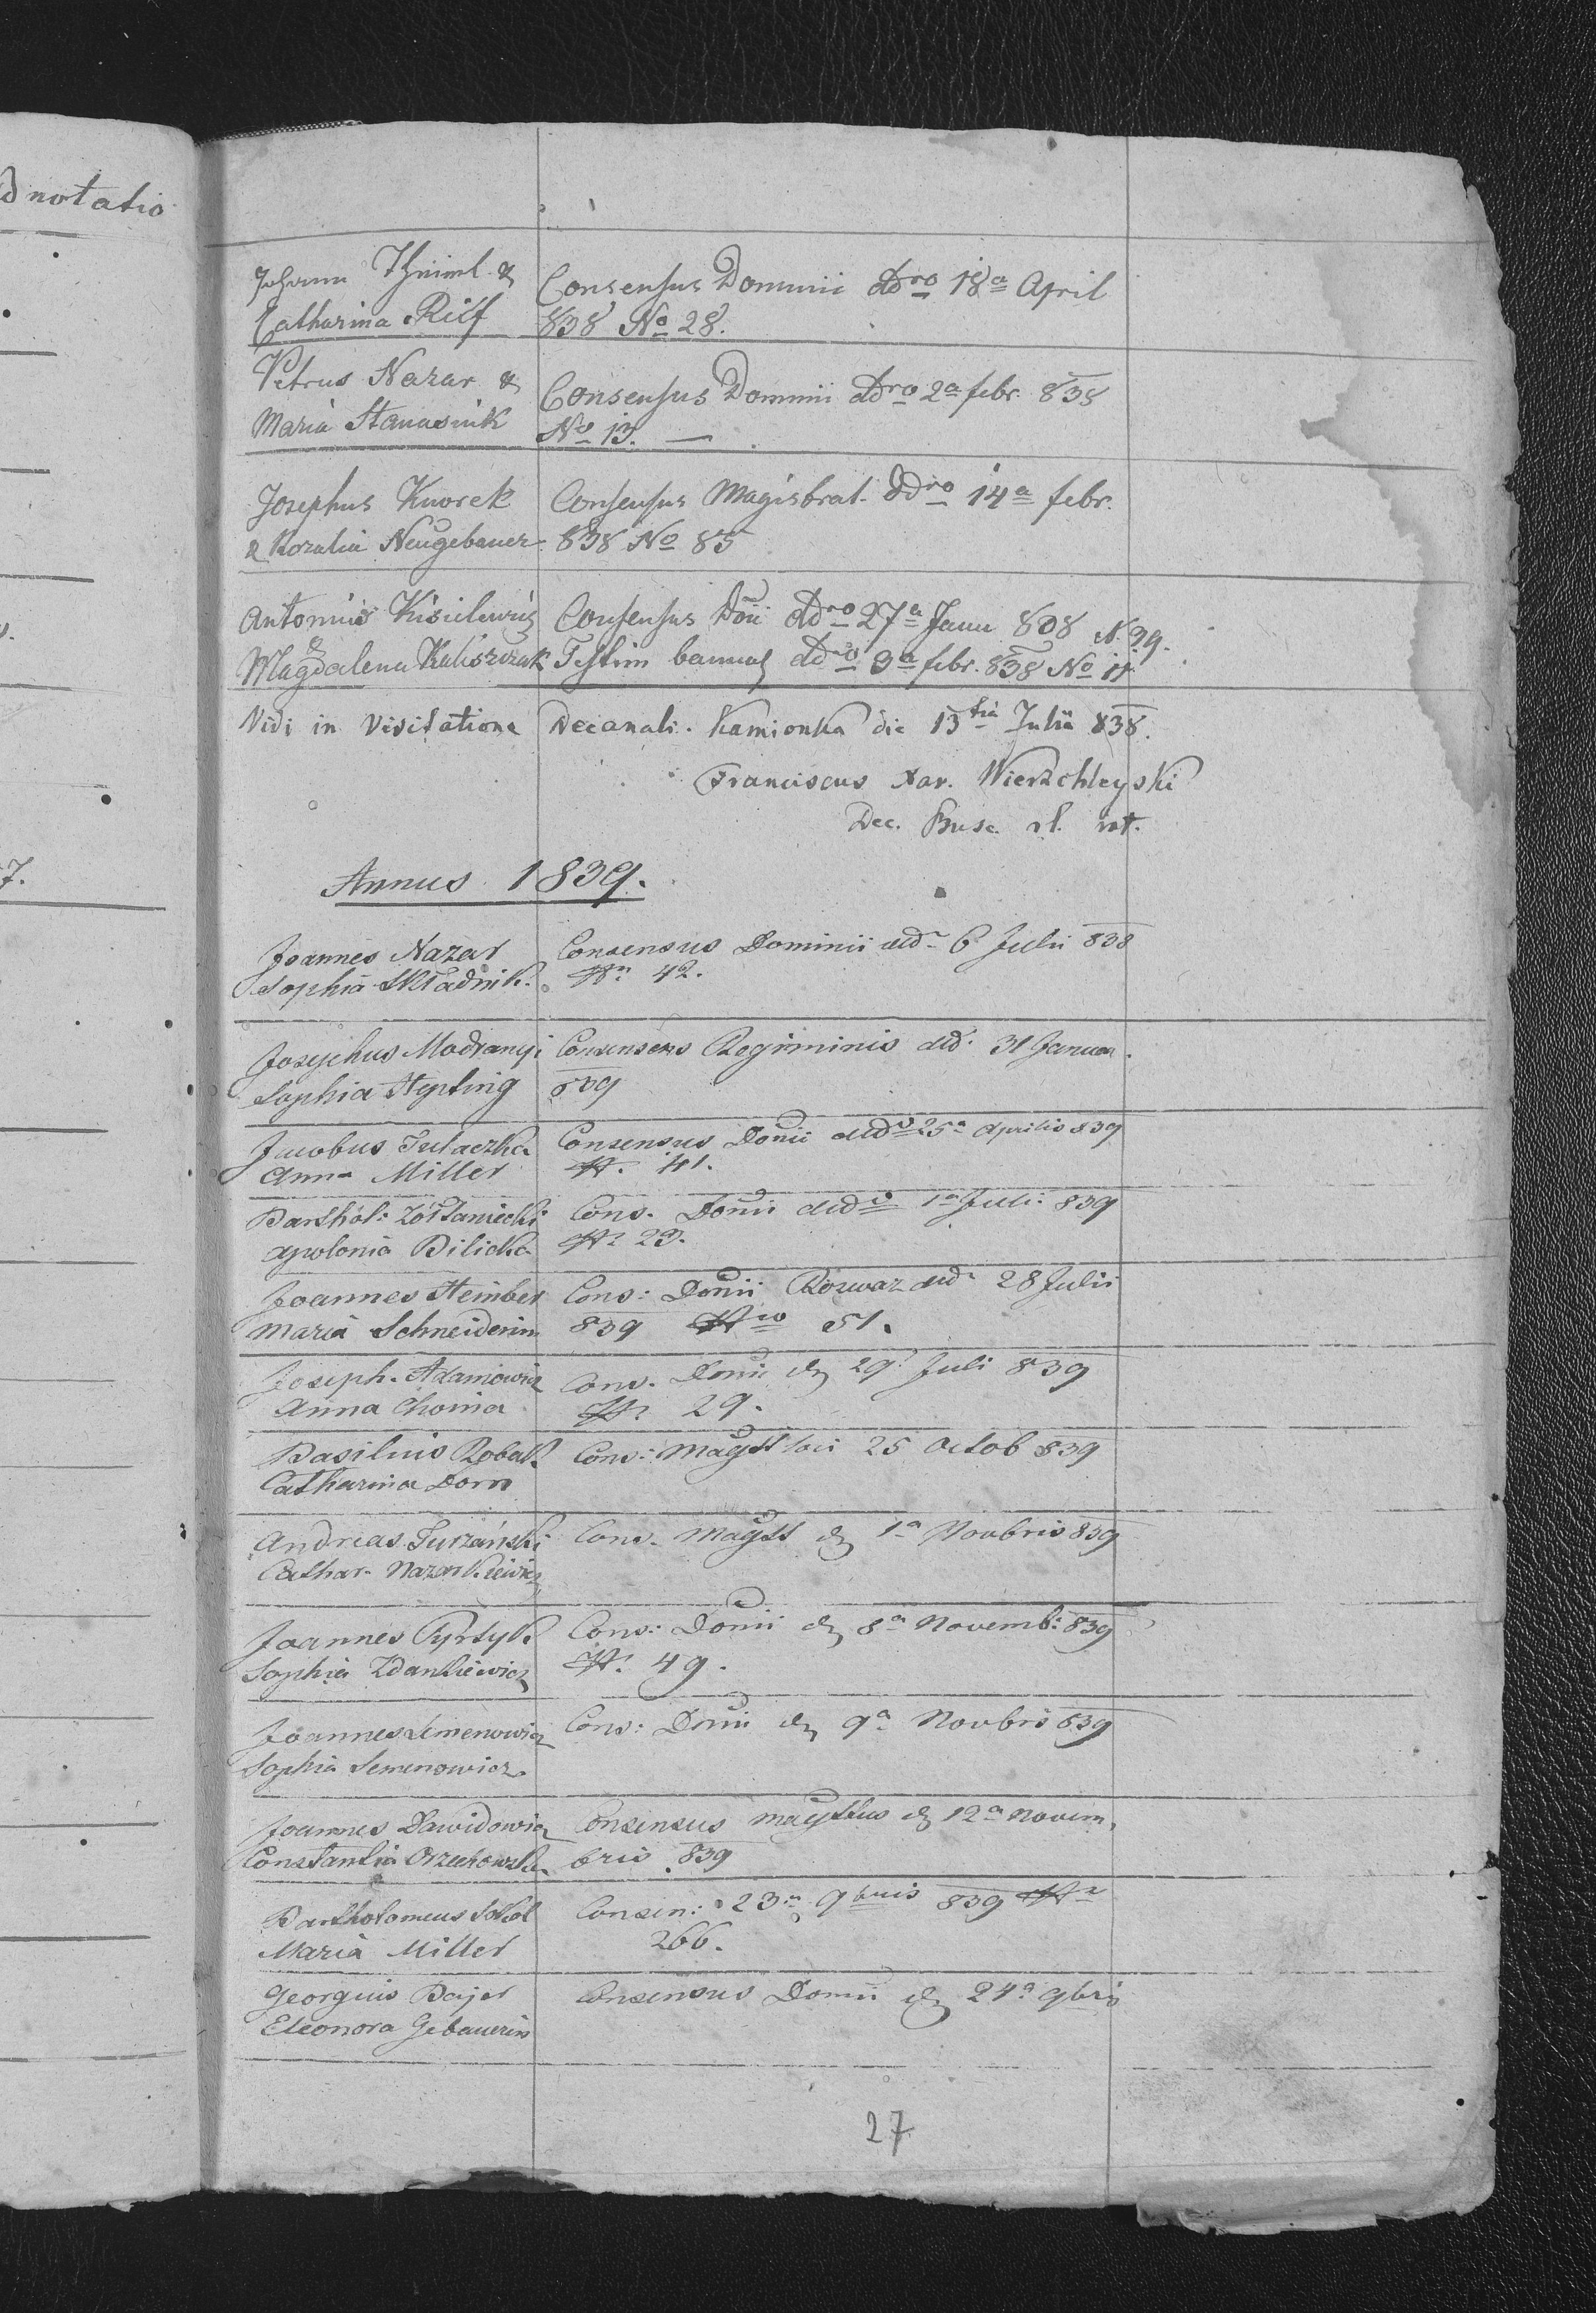 dnotatio
Johann Thniml &
Catharina Rilf
Consensus Dominii ddro 18a April
838 No 28.
Petrus Nazar &
Maria Stanasiuk
Consensus Dominii ddro 2a febr. 838
No 13. —
Josephus Knorek
& Rozalia Neugebauer
Consensus Magistrat. ddro 14a febr.
838 No 85
Antonius Kisielewicz
&
Magdalena Kaliszczak
Consensus Dōii ddro 27a Janu 808 N. 99.
Testim bannal ddro 3a febr. 838 No 11
Vidi in Visitatione Decanali. Kamionka die 13tia Julii 838.
Franciscus Xav. Wierzchleyski
Dec. Busc. rl. mt.
7.
Annus 1839.
Joannes Nazar
Sophia Skladnik.
Consensus Dominii ddr 6 Julii 838
Nr 42.
Josephus Modranyi
Sophia Hepting
Consensus Regiminis dd. 31 Januar.
839
Jacobus Tulaczka
Anna Miller
Consensus Domii ddo 25a Aprilis 839
N. 41.
Barthol: Zółtaniecki
Apolonia Bilicka
Cons. Domii ddo 1a Juli 839
Nr 23.
Joannes Steinber
Maria Schneiderin
Cons: Domii Rozwaz ddr 28 Julii
839 Nro 51.
Joseph. Adamowicz
Anna Choma
Cons. Domii d 29. Juli 839
Nr 29.
Basilius Robak
Catharina Dorn
Cons: Magstt loci 25 Octob 839
Andreas Turzański
Cathar. Nazarkiewicz
Cons. Magstt d 1a Novbris 839
Joannes Pyrtyk
Sophia Zdankiewicz
Cons: Domii d 8a Novemb: 839
N. 49.
Joannes Semenowicz
Sophia Semenowicz
Cons: Domii d 9a Novbris 839
Joannes Dawidowicz
Constantia Orzechowska
Consensus Magsttus d 12a Novem,
bris 839
Bartholomeus Sokol
Maria Miller
Consen: 23a 9bris 839 Nr
266.
Georgius Bajer
Eleonora Gebauerin
Consensus Domii d 24a 9bris
27